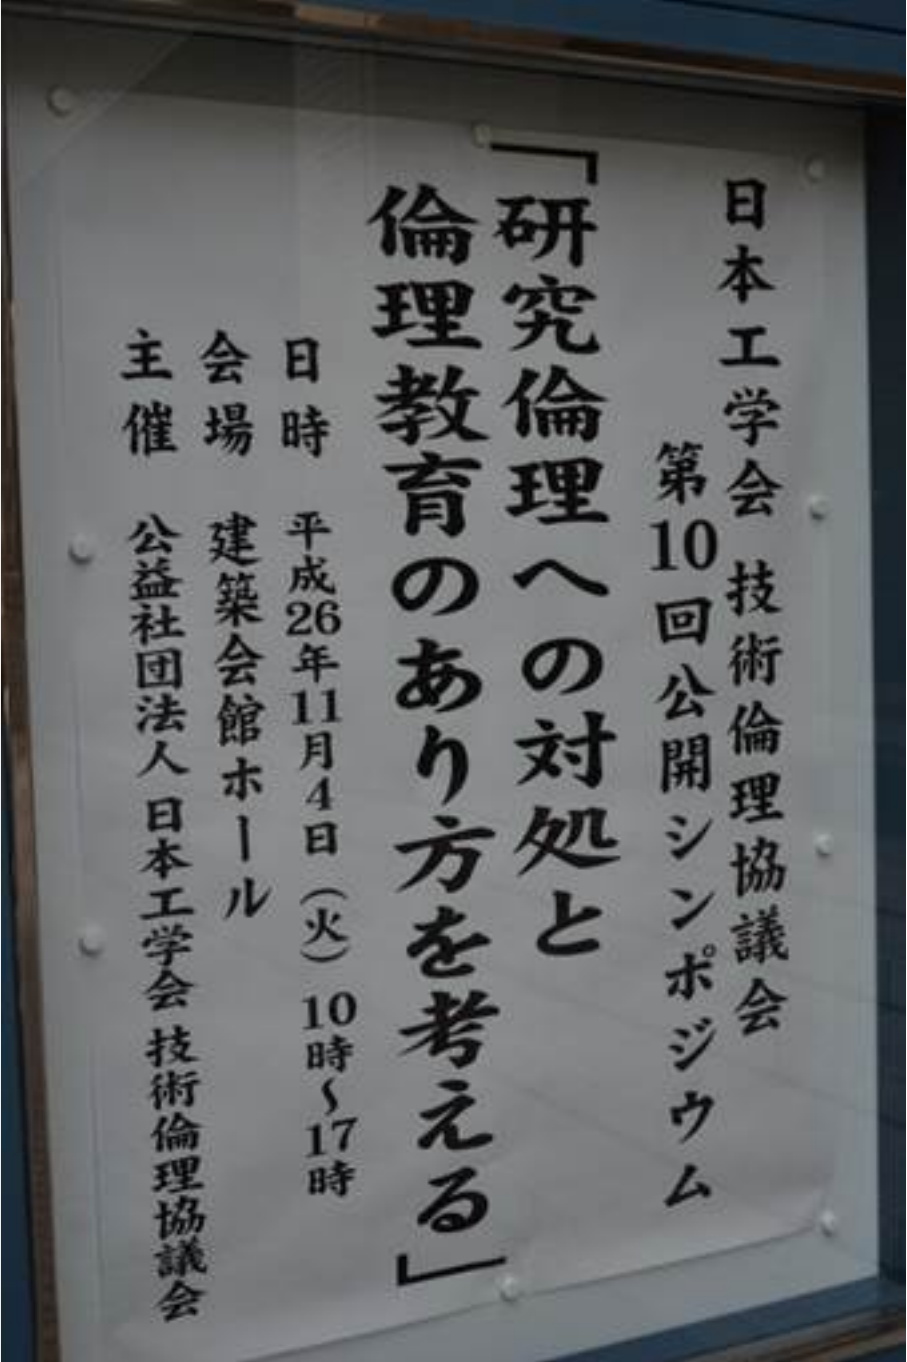 日本工学会 技術倫理協議会
第10回公開シンポジウム
「研究倫理への対処と
倫理教育のあり方を考える」
日時 平成26年11月4日（火）10時～17時
会場 建築会館ホール
主催 公益社団法人 日本工学会 技術倫理協議会